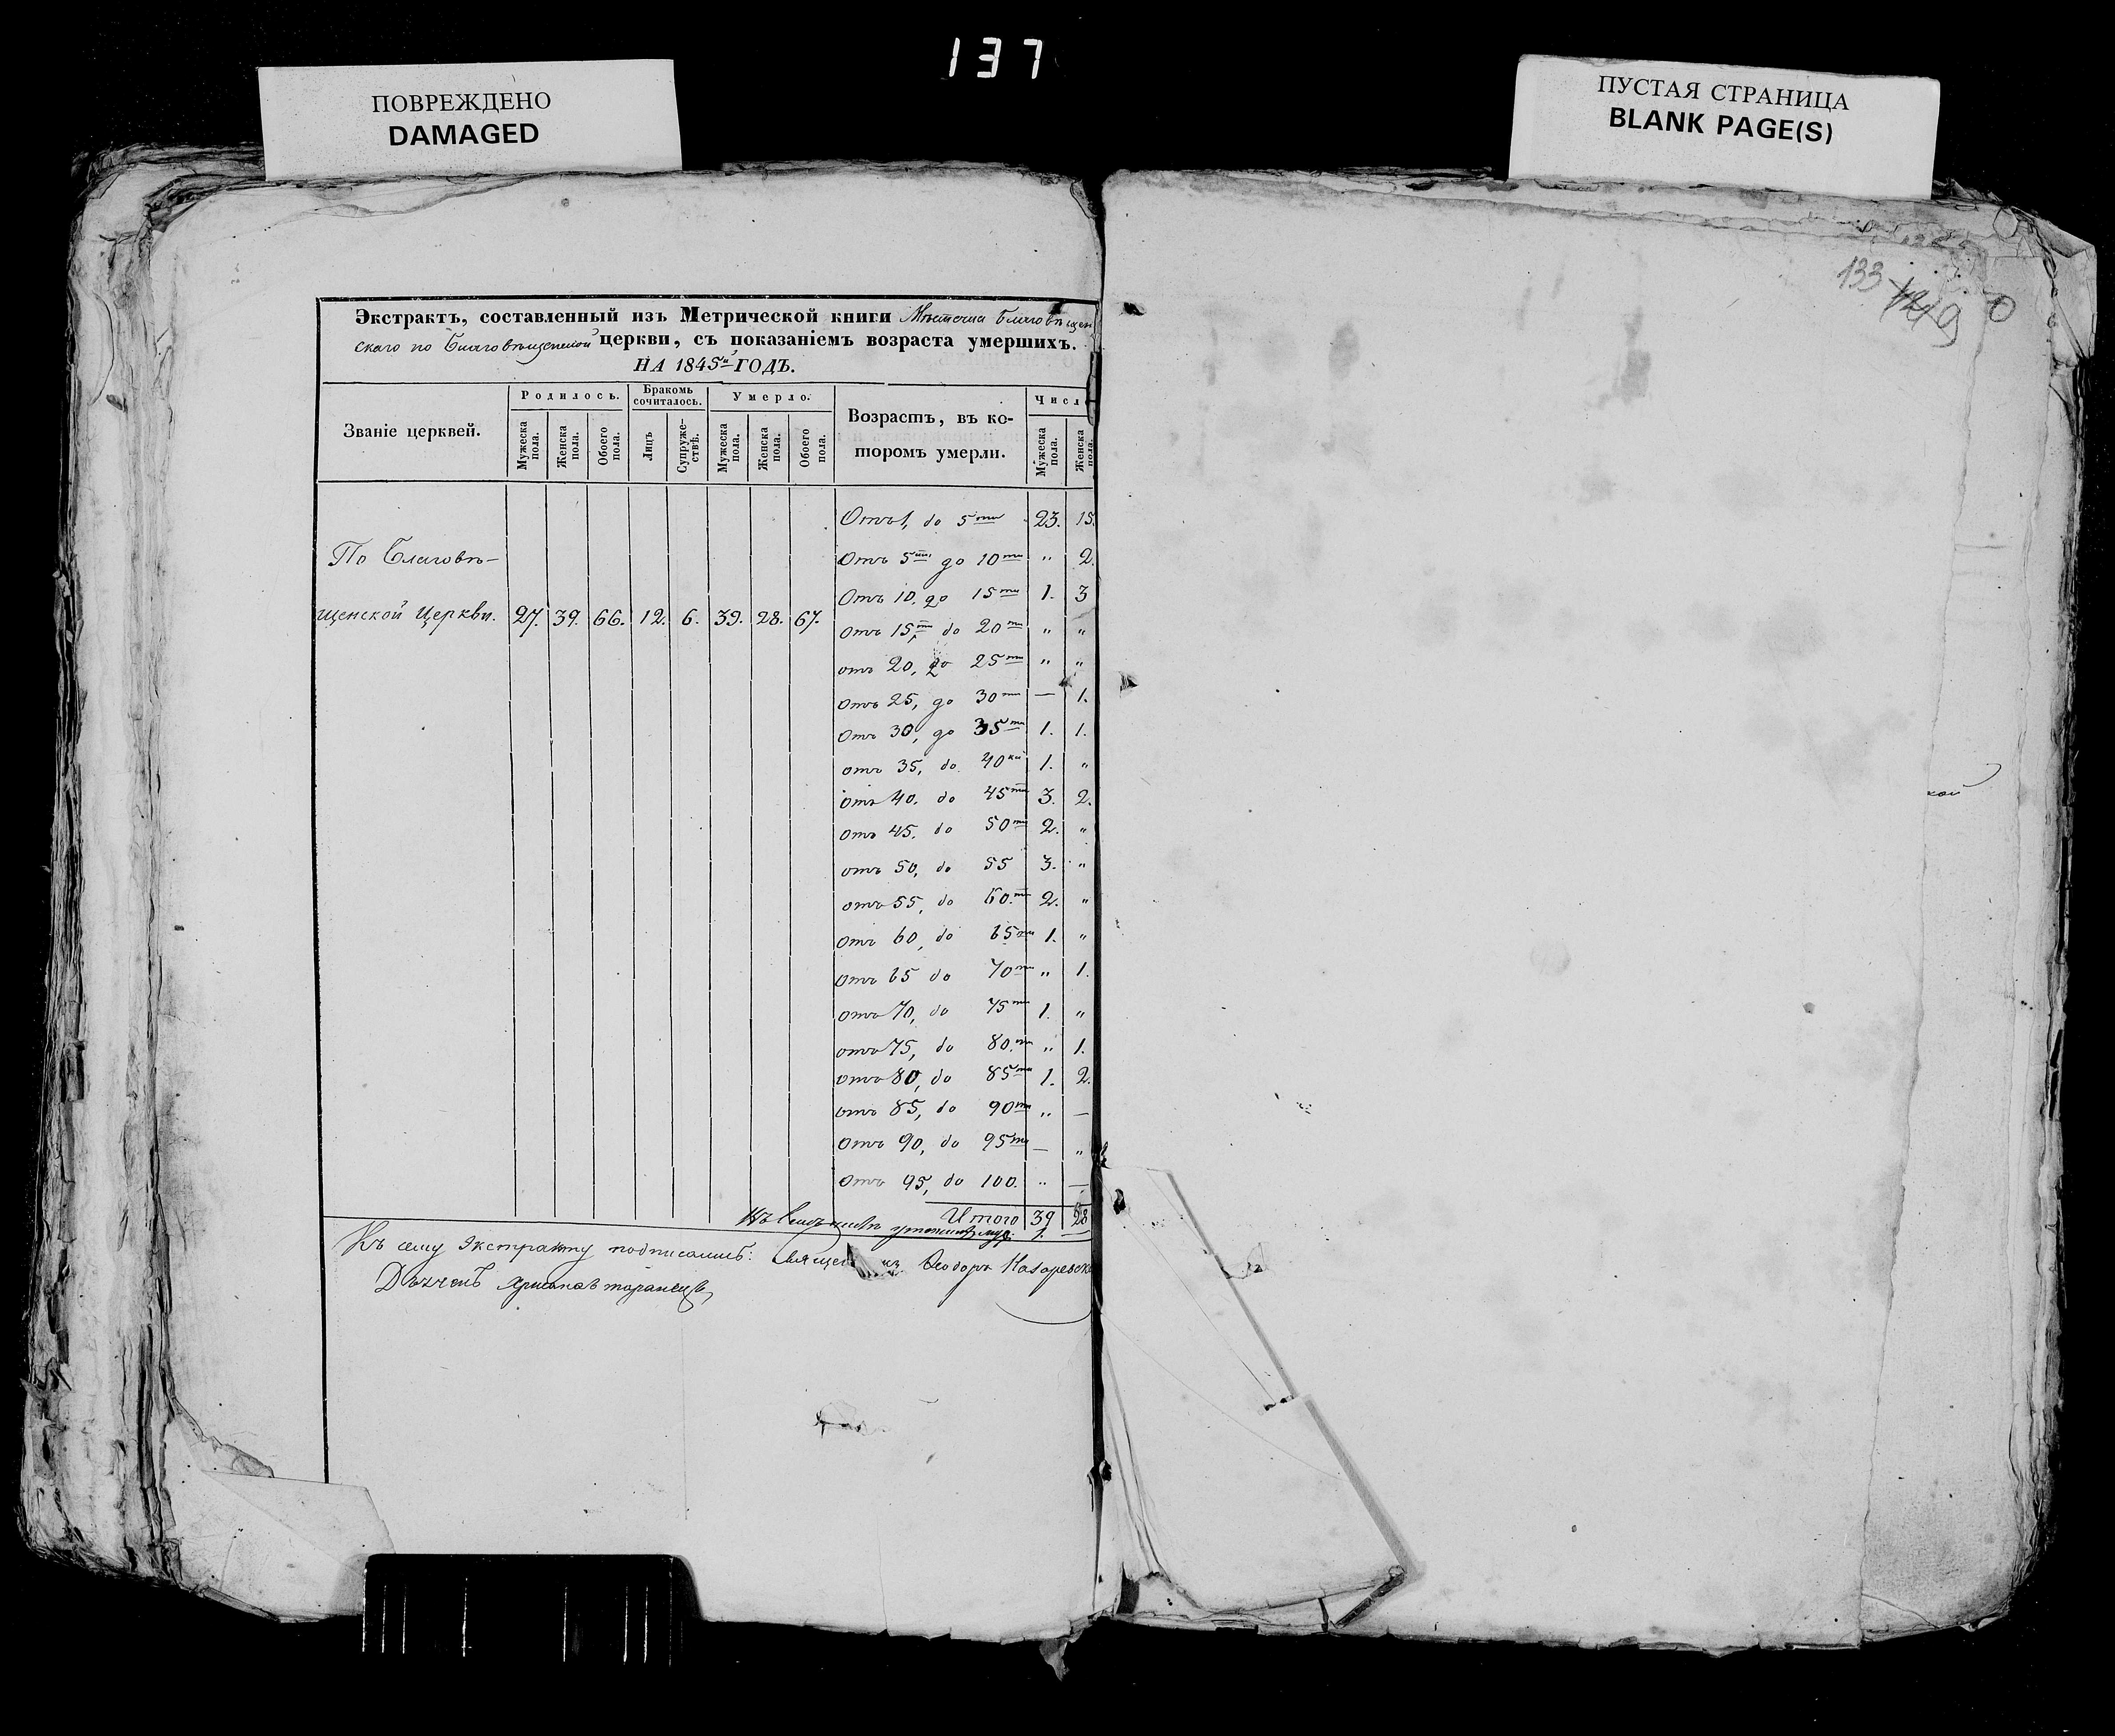 137
ПОВРЕЖДЕНО
DAMAGED
ПУСТАЯ СТРАНИЦА
BLANK PAGE(S)
133
Экстрактъ, составленный изъ Метрической книги Мѣстечка Благовѣщен
скаго по Благовѣщенской церкви, съ показаніемъ возраста умершихъ.
НА 1845й ГОДЪ.
Званіе церквей.
Родилось.
Бракомъ сочиталось.
Умерло.
Возрастъ, въ ко-
торомъ умерли.
Числ
Мужеска пола.
Женска пола.
Обоего пола.
Лицъ
Супруже-ствъ.
Мужеска пола.
Женска пола.
Обоего пола.
Мужеска пола.
Женска пола.
По Благовѣ-
щенской Церкви. 27. 39. 66. 12. 6. 39. 28. 67.
Отъ 1, до 5ти 23. 15.
Отъ 5ти до 10ти " 2.
Отъ 10, до 15ти 1. 3
Отъ 15ти до 20ти " "
отъ 20, до 25ти " "
Отъ 25, до 30ти — 1.
Отъ 30, до 35ти 1. 1.
отъ 35, до 40ка 1. "
отъ 40. до 45ти 3. 2.
отъ 45. до 50ти 2. "
отъ 50, до 55 3. "
отъ 55, до 60.ти 2. "
отъ 60, до 65ти 1. "
отъ 65 до 70ти " 1.
отъ 70, до 75ти 1. "
отъ 75, до 80.ти " 1.
отъ 80, до 85ти 1. 2.
отъ 85, до 90ти " —
Отъ 90, до 95ти — "
Отъ 95, до 100. " —
Итого 39 28
1. —
Къ сему Экстракту подписались: Священ Ѳеодоръ Назаревск
Дьяченъ
кой